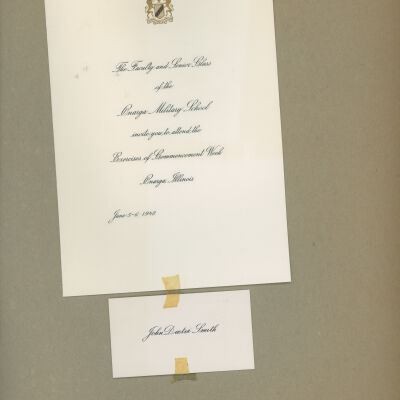 The Faculty and Senior Class
of the
Onarga Military School
invite you to attend the
Exercises of Commencement Week
Onarga, Illinois
June 5-6, 1948
John Smith